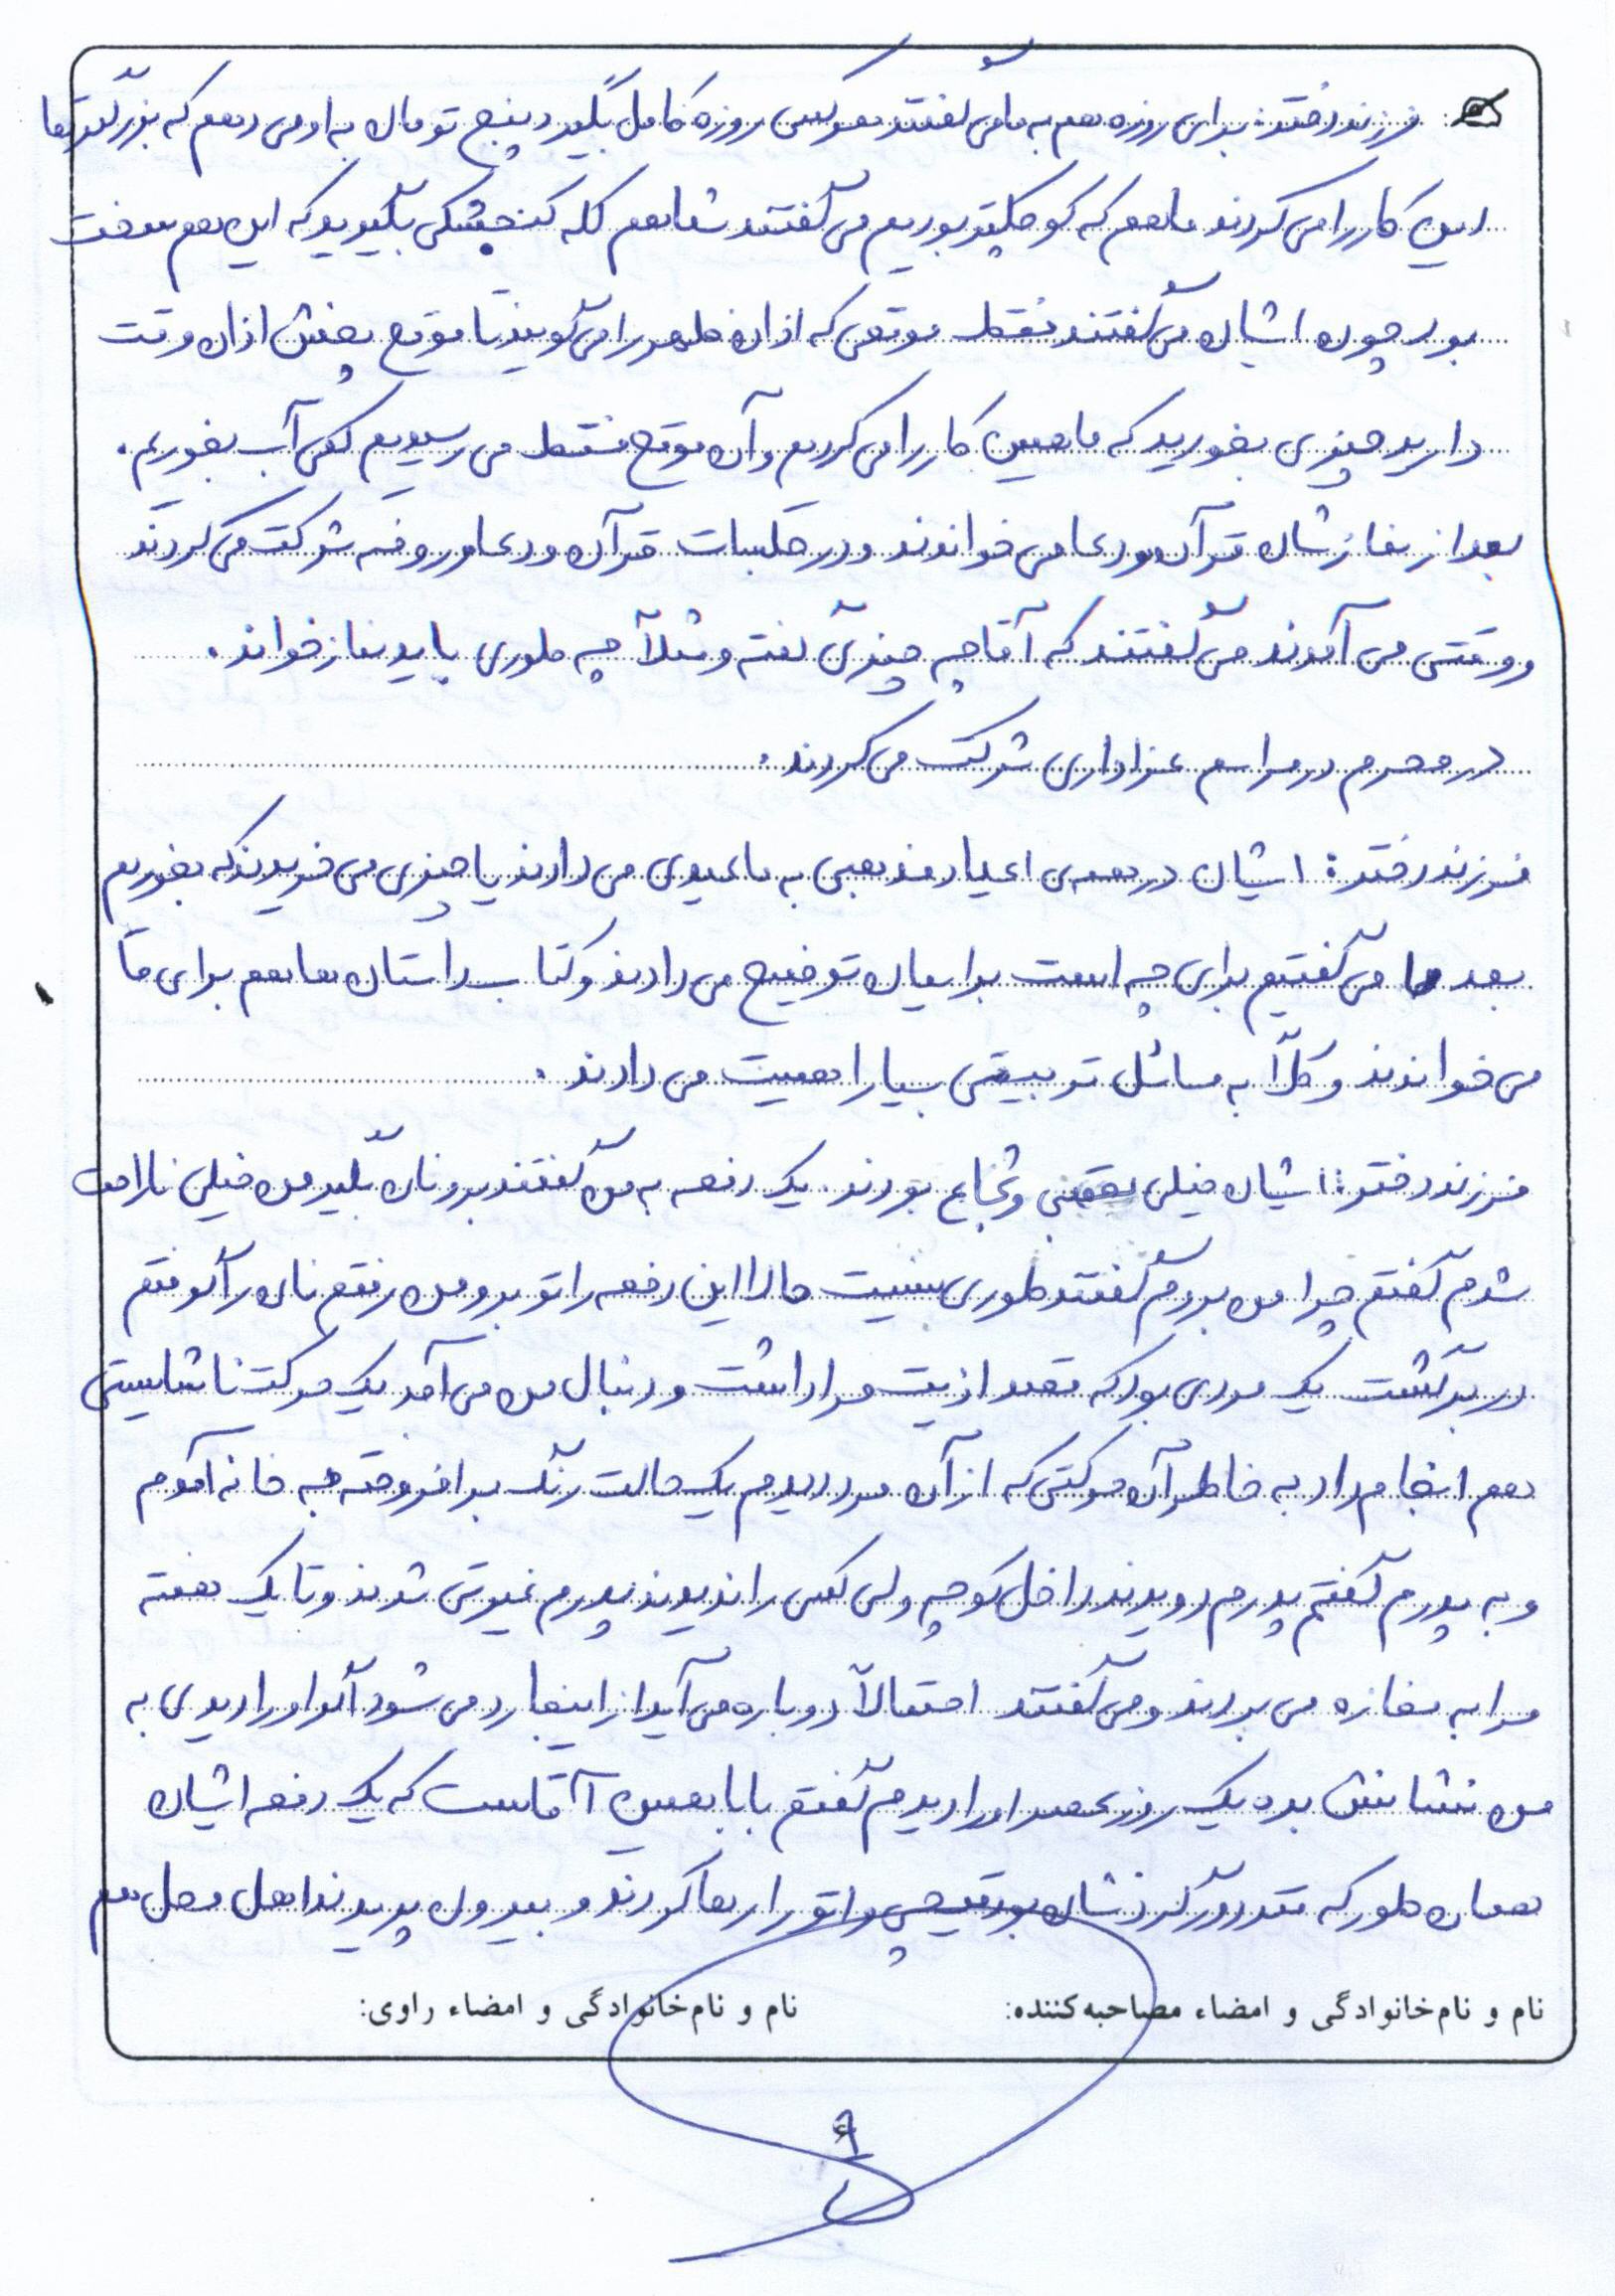 فرزند دختر: برای روزه هم به ما می گفتند هر کس روزه کامل بگیرد پنج تومان به او می دهم که بزرگترها
این کار را می کردند ما هم که کوچکتر بودیم می گفتند شما هم کله گنجشکی بگیرید که این هم سخت
بود چون ایشان می گفتند فقط موقعی که اذان ظهر را می گویند تا موقع پخش اذان وقت
دارید چیزی بخورید که ما همین کار را می کردیم و آن موقع فقط می رسیدیم کمی آب بخوریم.
بعد از نمازشان قرآن و دعا می خواندند و در جلسات قرآن و دعا و روضه شرکت می کردند
و وقتی می آمدند می گفتند که آقا چه چیزی گفته و مثلاً چه طوری باید نماز خواند.
در محرم در مراسم عزاداری شرکت می کردند.
فرزند دختر: ایشان در همه ی اعیاد مذهبی به ما عیدی می دادند یا چیزی می خریدند که بخوریم
بعد ما می گفتیم برای چه است برایمان توضیح می دادند و کتاب داستان ها هم برای ما
می خواندند و کلاً به مسائل تربیتی بسیار اهمیت می دادند.
فرزند دختر: ایشان خیلی و شجاع بودند. یک دفعه به من گفتند برو نان بگیر من خیلی ناراحت
شدم گفتم چرا من بروم گفتند طوری نیست حالا این دفعه را تو برو من رفتم نان را گرفتم
در برگشت یک مردی بود که قصد اذیت مرا داشت و دنبال من می آمد یک حرکت ناشایستی
هم انجام داد به خاطر آن حرکتی که از آن مرد دیدم یک حالت رنگ برافروخته به خانه آمدم
و به پدرم گفتم پدرم دویدند داخل کوچه ولی کسی را ندیدند پدرم غیرتی شدند و تا یک هفته
مرا به مغازه می بردند و می گفتند احتمالاً دوباره می آید از اینجا رد می شود اگر او را دیدی به
من نشانش بده یک روز عصر او را دیدم گفتم بابا همین آقاست که یک دفعه ایشان
همان طور که متر دور گردنشان بود قیچی و اتو را رها کردند و بیرون پریدند اهل محل هم
نام و نام خانوادگی و امضاء مصاحبه کننده: نام و نام خانوادگی و امضاء راوی: